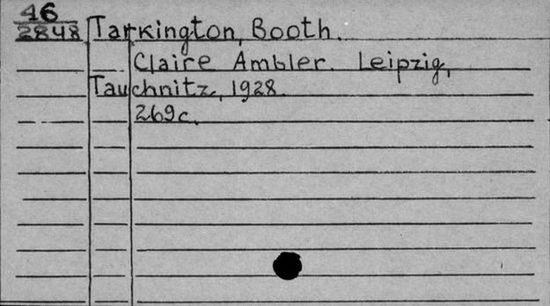 46
2848 Tarkington, Booth.
Claire Ambler. Leipzig,
Tauchnitz, 1928.
269c.